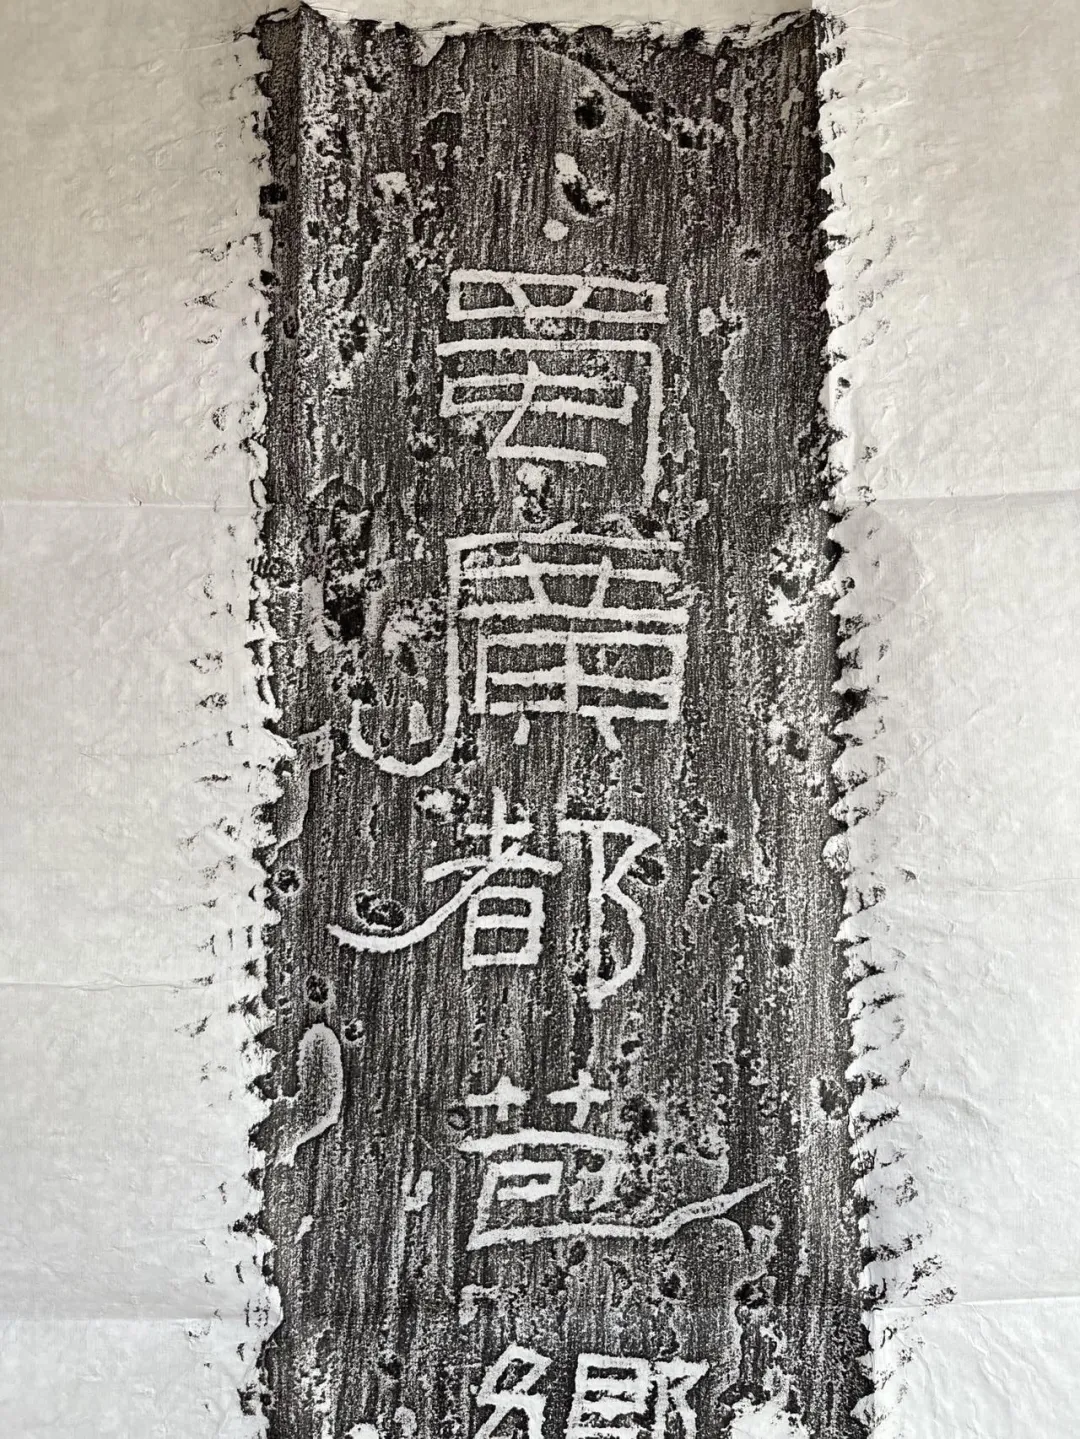 蜀廣都鄉